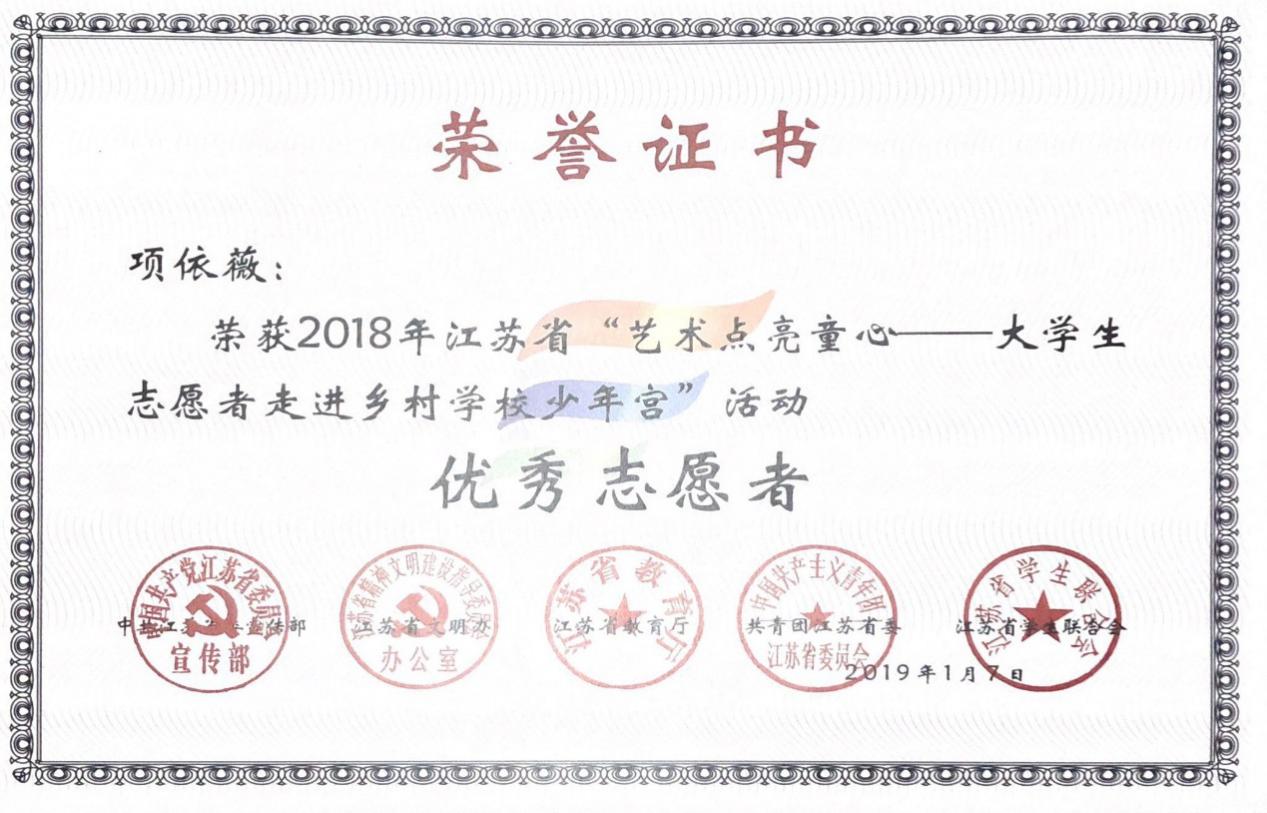 荣誉证书
项依薇：
荣获2018年江苏省“艺术点亮童心——大学生
志愿者走进乡村学校少年宫”活动
优秀志愿者
中国共产党江苏省委员会
宣传部
中共江苏省委宣传部
江苏省精神文明建设指导委员会
办公室
江苏省文明办
江苏省教育厅
江苏省教育厅
中国共产主义青年团
江苏省委员会
共青团江苏省委
江苏省学生联合会
江苏省学生联合会
2019年1月7日